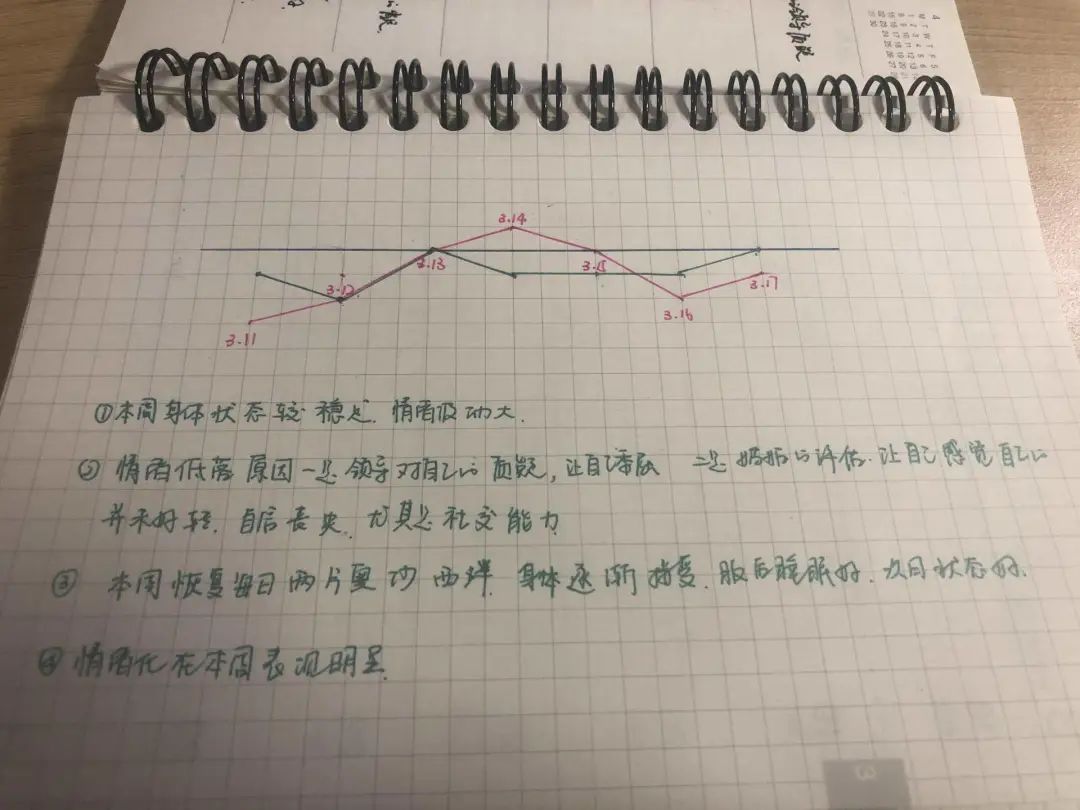 3.14
3.13
3.15
3.12
3.17
3.16
3.11
①本周身体状态较稳定.情绪波动大.
②情绪低落原因一是领导对自己的质疑,让自己 二是妈妈的评估.让自己感觉自己的
并未好转.自信丧失.尤其是社交能力
③ 本周恢复每日两片奥沙西泮.身体逐渐恢复.服后睡眠好.次日状态好.
④情绪化在本周表现明显.